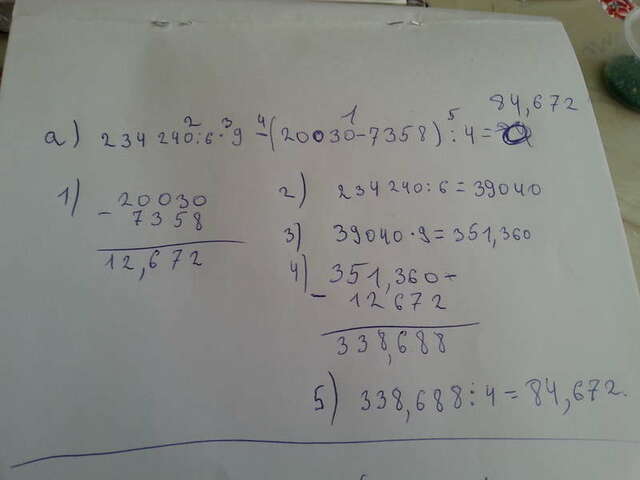 84,672
2 3 4 1 5
а) 234 240:6·9-(20030-7358):4=
1) 20030
- 7358
12,672
2) 234 240:6=39040
3) 39040·9=351,360
4) 351,360-
- 12672
338,688
5) 338,688:4=84,672.